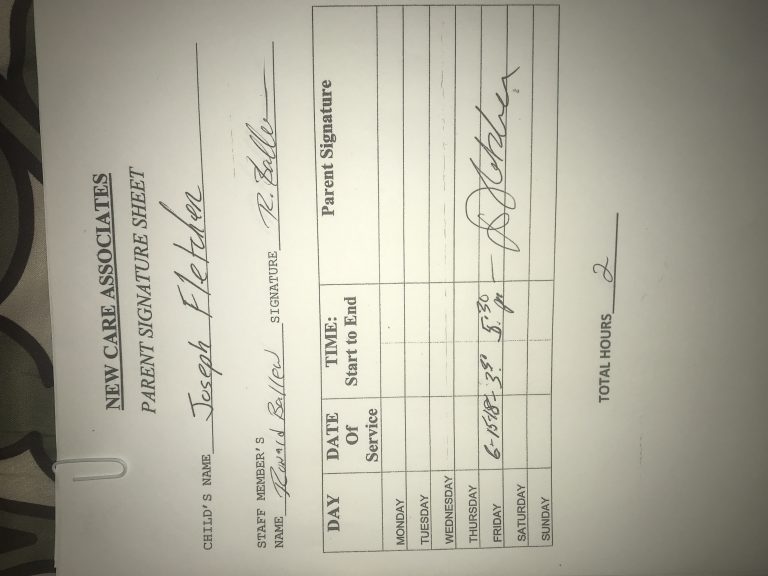 NEW CARE ASSOCIATES
PARENT SIGNATURE SHEET
CHILD'S NAME Joseph Fletcher
STAFF MEMBER'S
NAME SIGNATURE R. Ballew
DAY DATE Of Service TIME: Start to End Parent Signature
MONDAY
TUESDAY
WEDNESDAY
THURSDAY
FRIDAY 6-15-18 - 3:30 5:30 pm
SATURDAY
SUNDAY
TOTAL HOURS 2